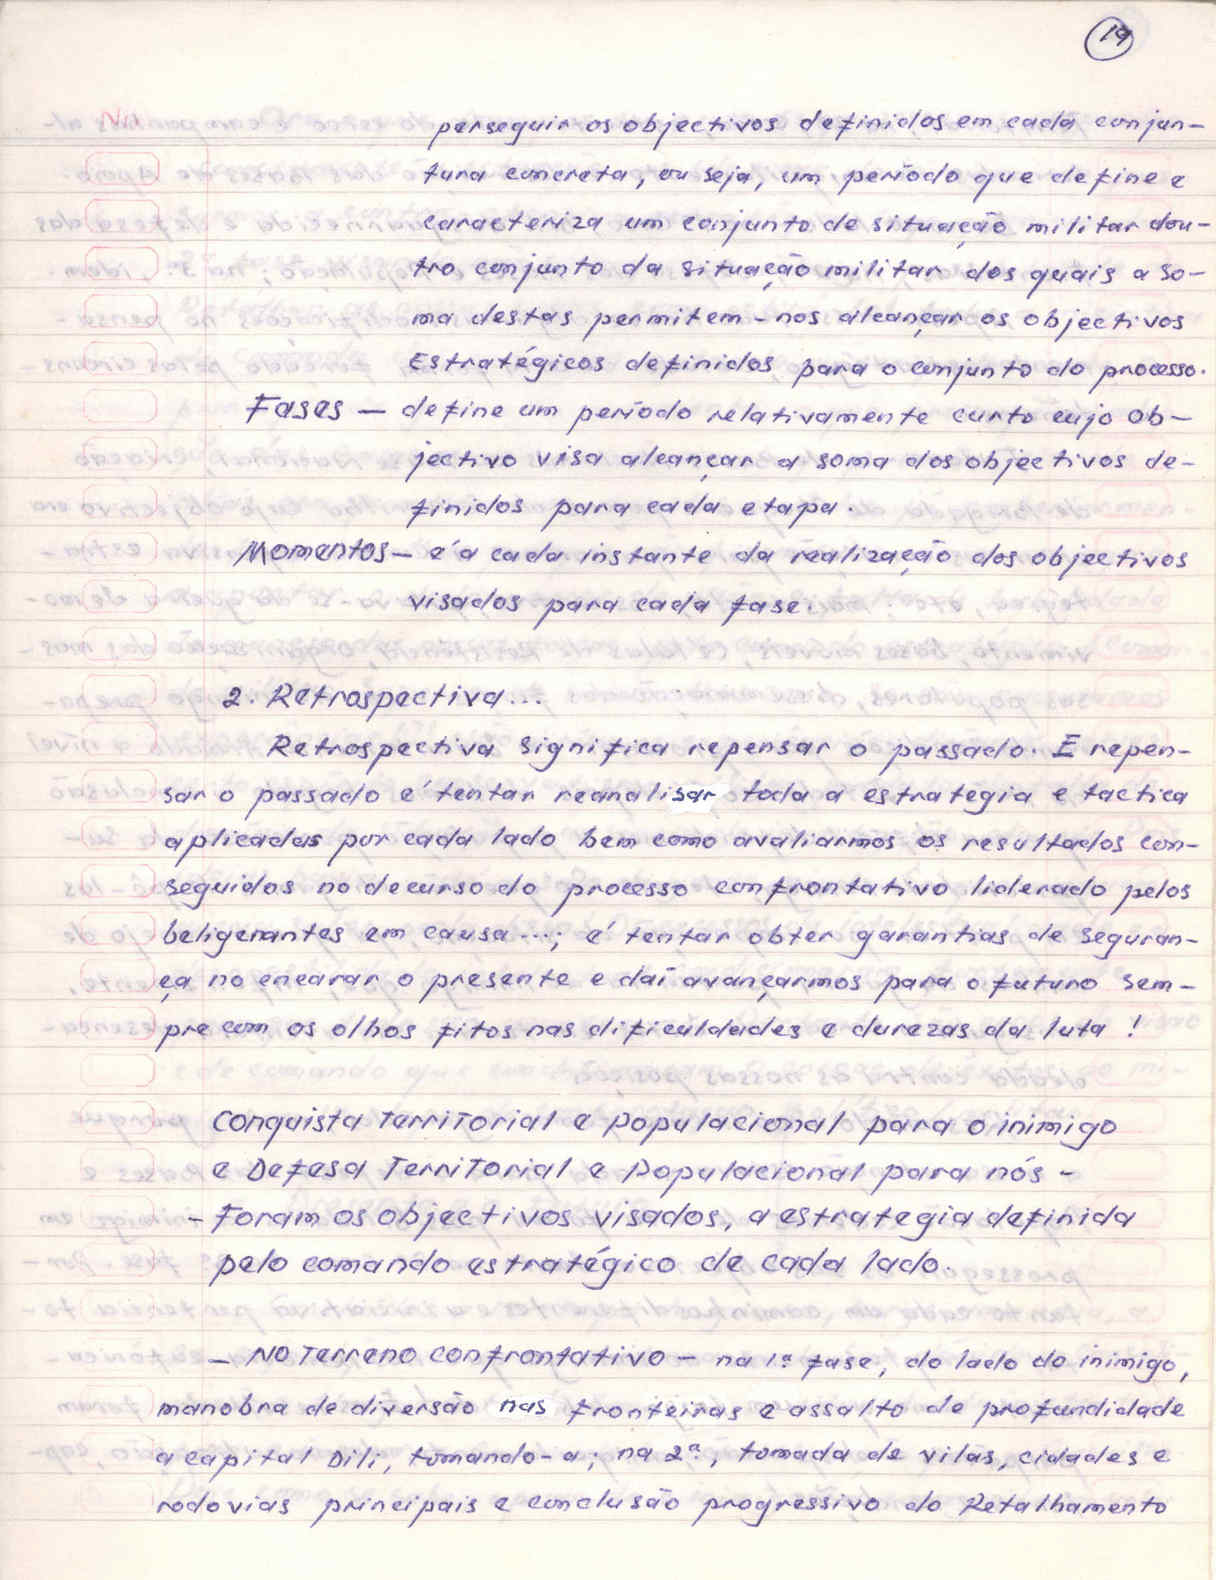 19
perseguir os objectivos definidos em cada conjun-
tura concreta, ou seja, um período que define e
caracteriza um conjunto de situação militar dou-
tro conjunto da situação militar dos quais a so-
ma destas permitem-nos alcançar os objectivos
Estratégicos definidos para o conjunto do processo.
Fases — define um período relativamente curto cujo ob-
jectivo visa alcançar a soma dos objectivos de-
finidos para cada etapa.
Momentos — é a cada instante da realização dos objectivos
visados para cada fase.
2. Retrospectiva...
Retrospectiva significa repensar o passado. E repen-
sar o passado é tentar reanalisar toda a estrategia e tactica
aplicadas por cada lado bem como avaliarmos os resultados con-
seguidos no decurso do processo confrontativo liderado pelos
beligerantes em causa...; é tentar obter garantias de seguran-
ça no encarar o presente e daí avançarmos para o futuro sem-
pre com os olhos fitos nas dificuldades e durezas da luta !
Conquista Territorial e Populacional para o inimigo
e Defesa Territorial e Populacional para nós -
- Foram os objectivos visados, a estrategia definida
pelo comando estratégico de cada lado.
- No Terreno confrontativo - na 1ª fase, do lado do inimigo,
manobra de diversão nas fronteiras e assalto de profundidade
a capital Dili, tomando-a; na 2ª, tomada de vilas, cidades e
rodovias principais e conclusão progressivo do Retalhamento